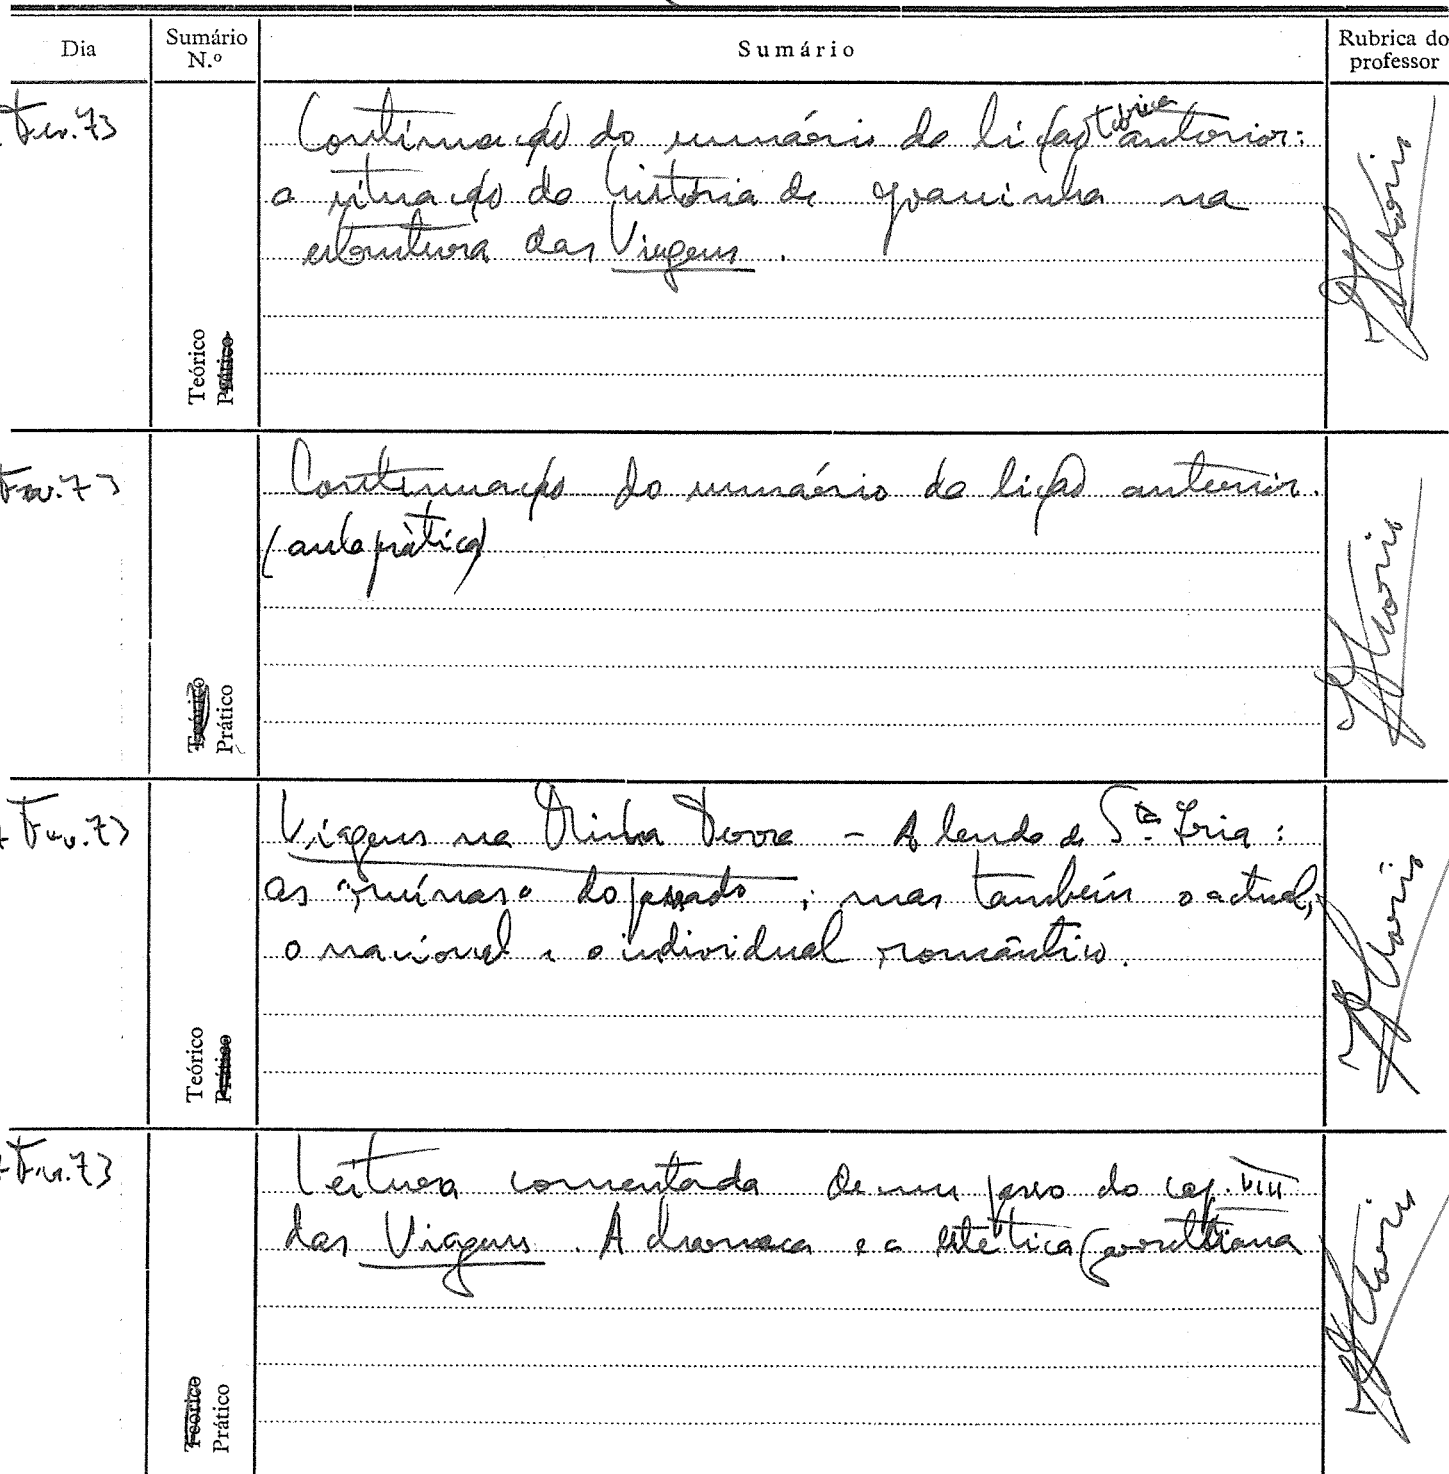 Dia Sumário N.º Sumário Rubrica do professor
Fev. 73
Continuação do sumário da lição teórica anterior:
a situação da história de Joaninha na
estrutura das Viagens.
Teórico
Prático
Fev. 73
Continuação do sumário da lição anterior.
(aula prática)
Teórico
Prático
Fev. 73
Viagens na Minha Terra - A lenda de S.ta Iria:
as "ruínas" do passado; mas também o actual,
o nacional e o individual romântico.
Teórico
Prático
Fev. 73
Leitura comentada de um passo do cap. VIII
das Viagens. A charneca e a estética garrettiana
Teórico
Prático